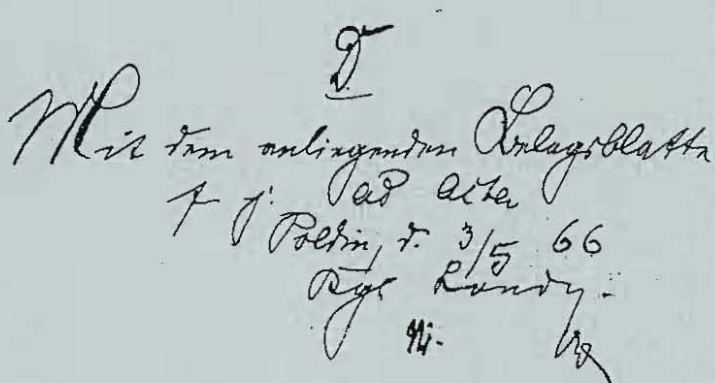 D.
Mit dem anliegenden Belagsblatte
ad acta
Soldin, d. 3/5 66
Kgl Landr.